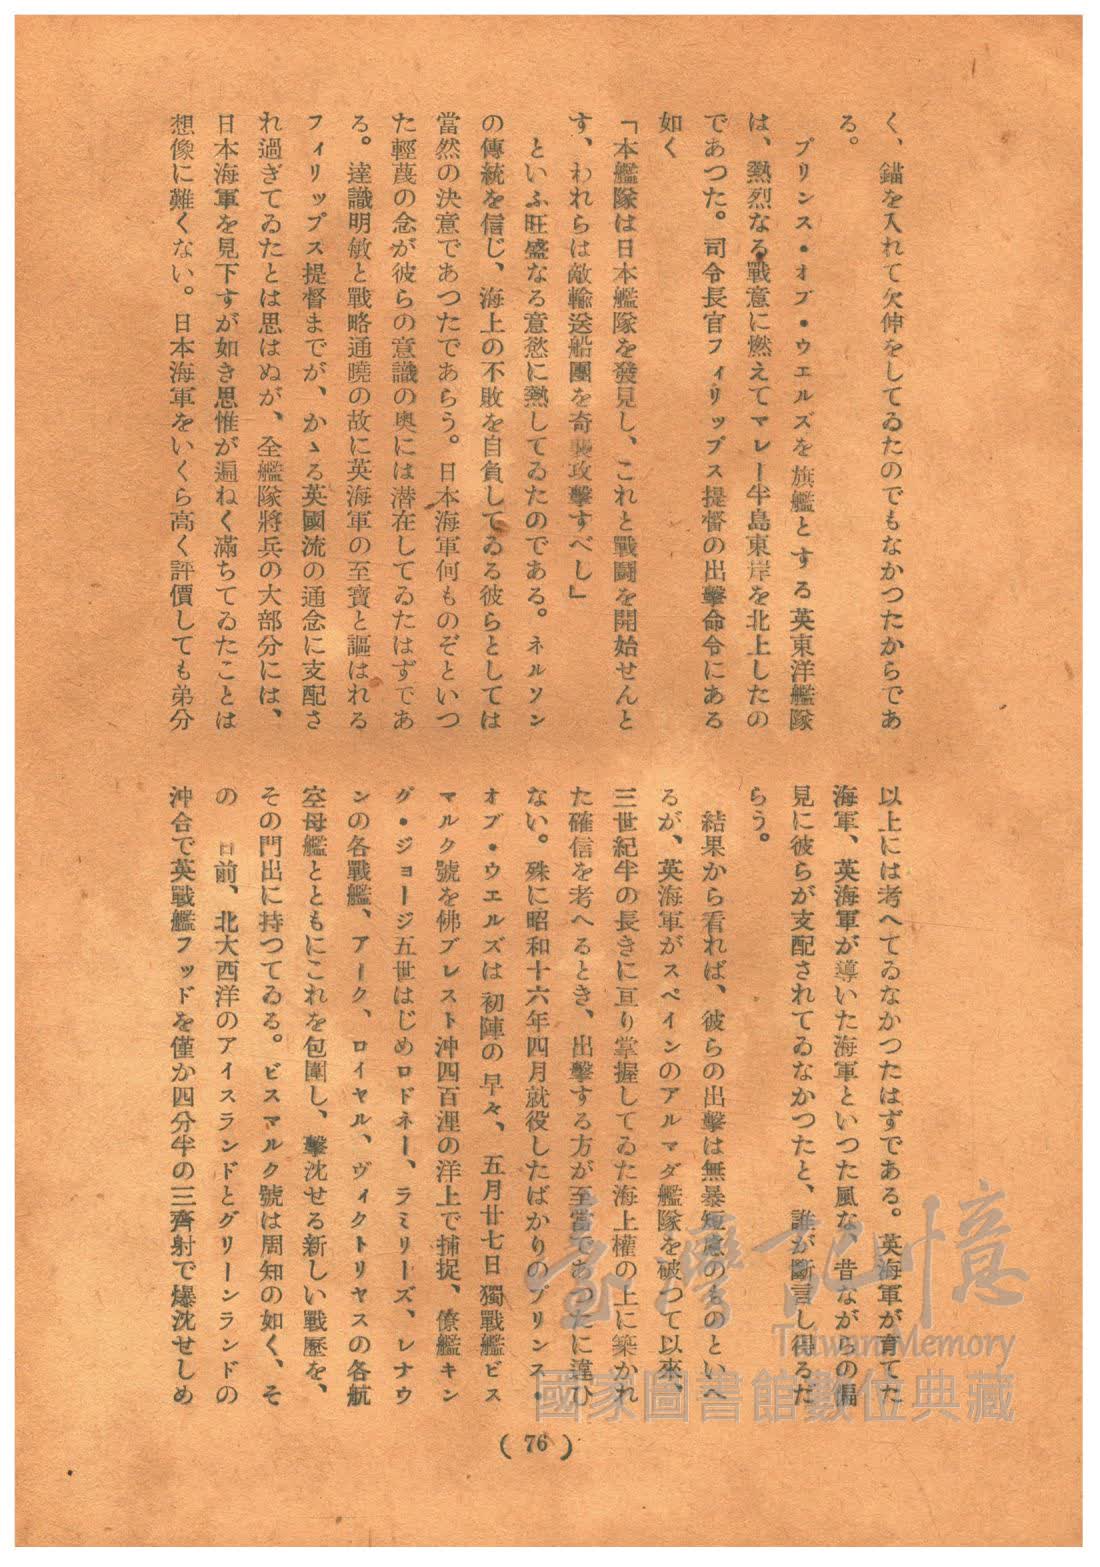 く、錨を入れて欠伸をしてゐたのでもなかつたからであ
る。
プリンス・オブ・ウエルズを旗艦とする英東洋艦隊
は、熱烈なる戰意に燃えてマレー半島東岸を北上したの
であつた。司令長官フィリップス提督の出擊命令にある
如く
「本艦隊は日本艦隊を發見し、これと戰鬪を開始せんと
す、われらは敵輸送船團を奇襲攻擊すべし」
といふ旺盛なる意慾に熱してゐたのである。ネルソン
の傳統を信じ、海上の不敗を自負してゐる彼らとしては
當然の決意であつたであらう。日本海軍何ものぞといつ
た輕蔑の念が彼らの意識の奧には潜在してゐたはずであ
る。達識明敏と戰略通曉の故に英海軍の至寶と謳はれる
フィリップス提督までが、かゝる英國流の通念に支配さ
れ過ぎてゐたとは思はぬが、全艦隊將兵の大部分には、
日本海軍を見下すが如き思惟が遍ねく滿ちてゐたことは
想像に難くない。日本海軍をいくら高く評價しても弟分
以上には考へてゐなかつたはずである。英海軍が育てた
海軍、英海軍が導いた海軍といつた風な、昔ながらの偏
見に彼らが支配されてゐなかつたと、誰が斷言し得るだ
らう。
結果から看れば、彼らの出擊は無暴短慮のものといへ
るが、英海軍がスペインのアルマダ艦隊を破つて以來、
三世紀半の長きに亘り掌握してゐた海上權の上に築かれ
た確信を考へるとき、出擊する方が至當であつたに違ひ
ない。殊に昭和十六年四月就役したばかりのプリンス・
オブ・ウエルズは初陣の早々、五月廿七日獨戰艦ビス
マルク號を佛ブレスト沖四百浬の洋上で捕捉、僚艦キン
グ・ジョージ五世はじめロドネー、ラミリーズ、レナウ
ンの各戰艦、アーク、ロイヤル、ヴィクトリヤスの各航
空母艦とともにこれを包圍し、擊沈せる新しい戰歷を、
その門出に持つてゐる。ビスマルク號は周知の如く、そ
の 日前、北大西洋のアイスランドとグリーンランドの
沖合で英戰艦フッドを僅か四分半の三齊射で爆沈せしめ
( 76 )
臺灣記憶
Taiwan Memory
國家圖書館數位典藏